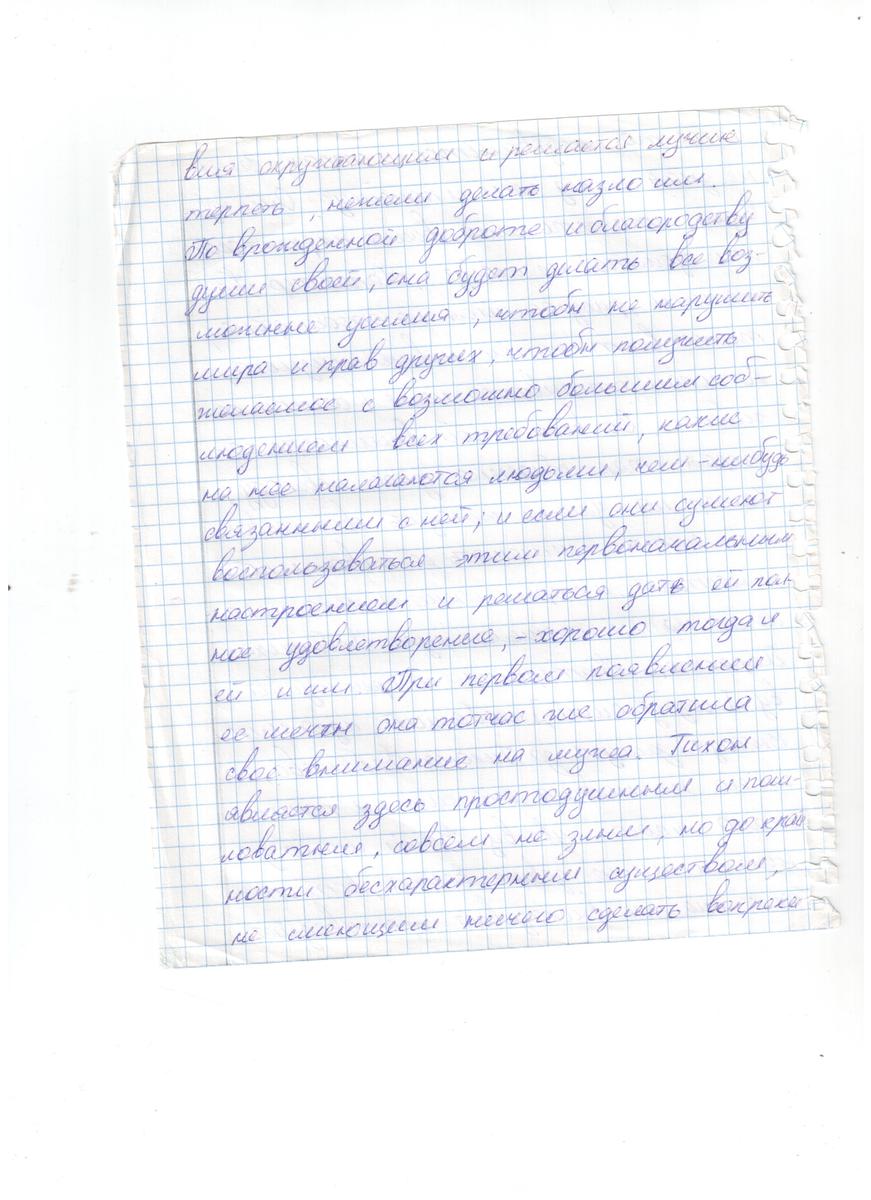 вия окружающим и решается лучше
терпеть, нежели делать назло им.
По врожденной доброте и благородству
души своей, она будет делать все воз-
можные усилия, чтобы не нарушить
мира и прав других, чтобы получить
желаемое с возможно большим соб-
людением всех требований, какие
на нее налагаются людьми, чем-нибудь
связанными с ней; и если они сумеют
воспользоваться этим первоначальным
настроением и решаться дать ей пол-
ное удовлетворение, - хорошо тогда и
ей и им. При первом появлении
ее мечты она тотчас же обратила
свое внимание на мужа. Тихон
является здесь простодушным и пош-
ловатым, совсем не злым, но до край
ности бесхарактерным существом,
не смеющим ничего сделать вопреки